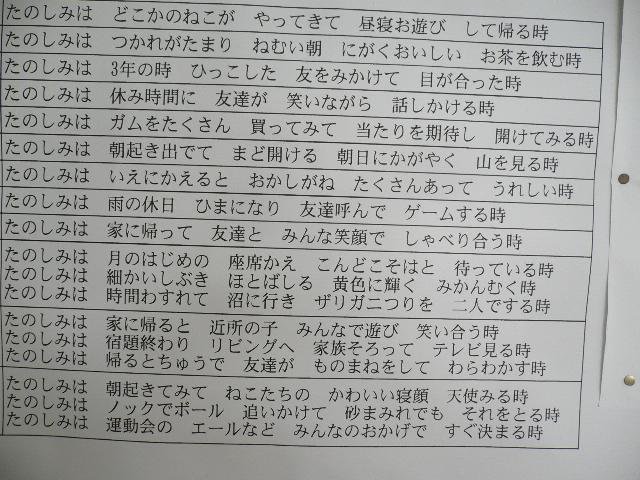 たのしみは　どこかのねこが　やってきて　昼寝お遊び　して帰る時
たのしみは　つかれがたまり　ねむい朝　にがくおいしい　お茶を飲む時
たのしみは　3年の時　ひっこした　友をみかけて　目が合った時
たのしみは　休み時間に　友達が　笑いながら　話しかける時
たのしみは　ガムをたくさん　買ってみて　当たりを期待し　開けてみる時
たのしみは　朝起き出でて　まど開ける　朝日にかがやく　山を見る時
たのしみは　いえにかえると　おかしがね　たくさんあって　うれしい時
たのしみは　雨の休日　ひまになり　友達呼んで　ゲームする時
たのしみは　家に帰って　友達と　みんな笑顔で　しゃべり合う時
たのしみは　月のはじめの　座席かえ　こんどこそはと　待っている時
たのしみは　細かいしぶき　ほとばしる　黄色に輝く　みかんむく時
たのしみは　時間わすれて　沼に行き　ザリガニつりを　二人でする時
たのしみは　家に帰ると　近所の子　みんなで遊び　笑い合う時
たのしみは　宿題終わり　リビングへ　家族そろって　テレビ見る時
たのしみは　帰るとちゅうで　友達が　ものまねをして　わらわかす時
たのしみは　朝起きてみて　ねこたちの　かわいい寝顔　天使みる時
たのしみは　ノックでボール　追いかけて　砂まみれでも　それをとる時
たのしみは　運動会の　エールなど　みんなのおかげで　すぐ決まる時